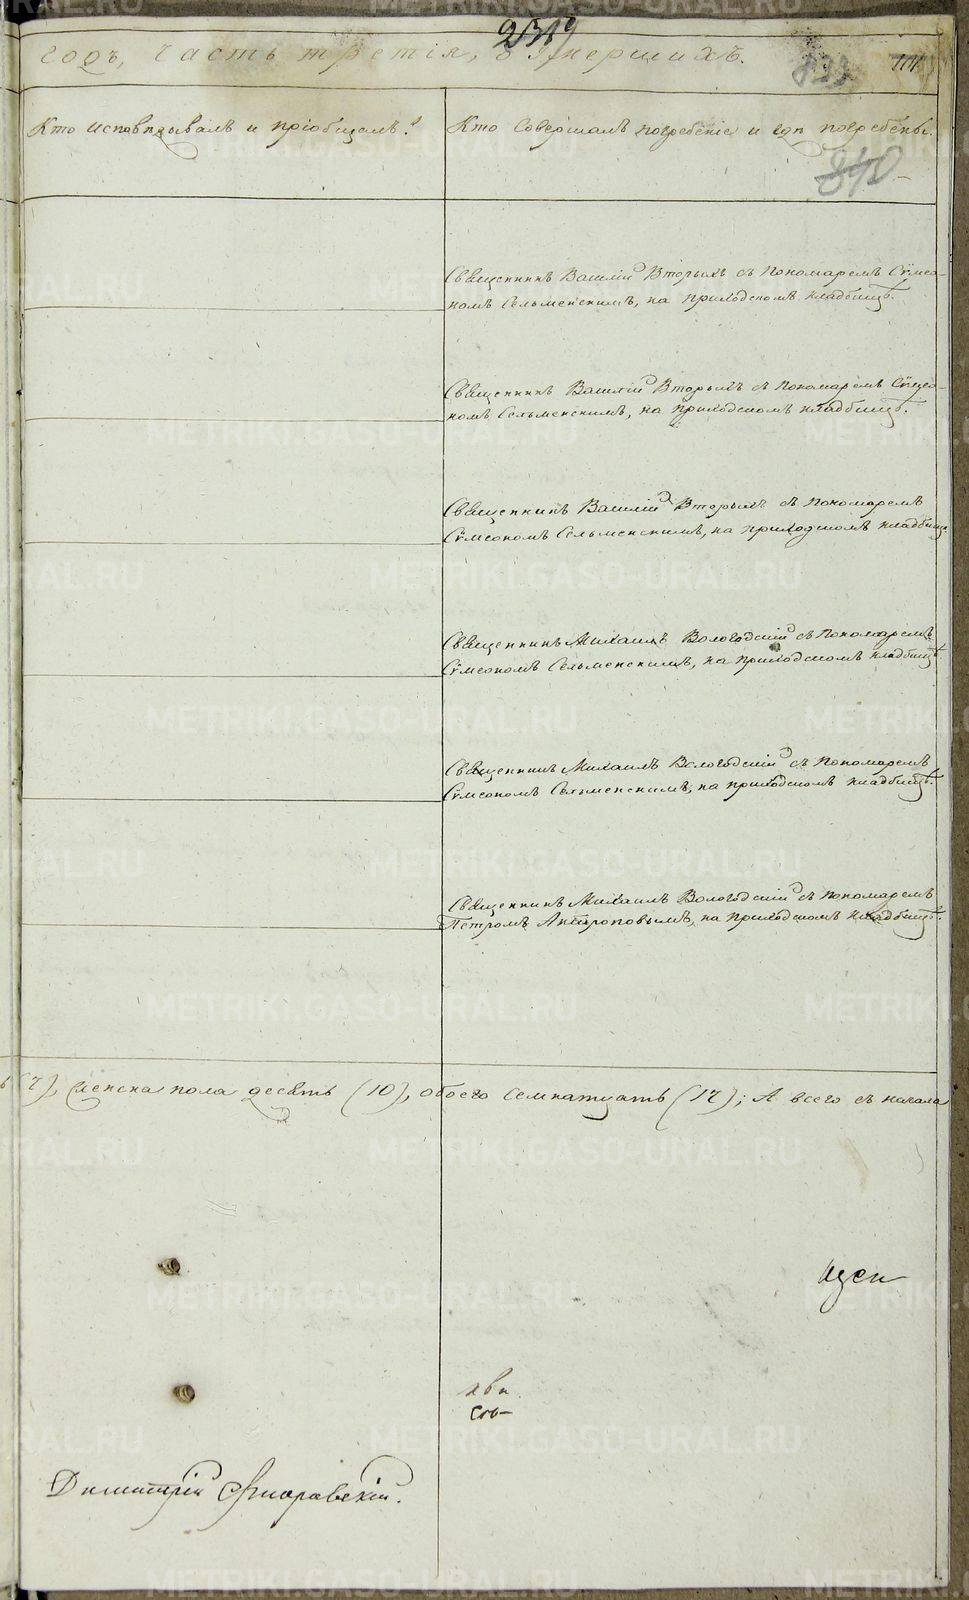 2319
годъ, часть третія, о умершихъ.
Кто исповѣдывалъ и пріобщалъ.
Кто совершалъ погребеніе и гдѣ погребены.
840
Священникъ Василій Вторыхъ съ пономаремъ Сѵмео-
номъ Сельменскимъ, на приходскомъ кладбищѣ.
Священникъ Василій Вторыхъ съ пономаремъ Сѵмео-
номъ Сельменскимъ, на приходскомъ кладбищѣ.
Священникъ Василій Вторыхъ съ пономаремъ
Сѵмеономъ Сельменскимъ, на приходскомъ кладбищѣ
Священникъ Михаилъ Вологодскій съ пономаремъ
Сѵмеономъ Сельменскимъ, на приходскомъ кладбищѣ.
Священникъ Михаилъ Вологодскій съ пономаремъ
Сѵмеономъ Сельменскимъ, на приходскомъ кладбищѣ.
Священникъ Михаилъ Вологодскій съ пономаремъ
Петромъ Антроповымъ, на приходскомъ кладбищѣ.
ь (7), женска пола десять (10), обоего семнатцать (17); А всего съ начала
Димитрій
METRIKI.GASO-URAL.RU